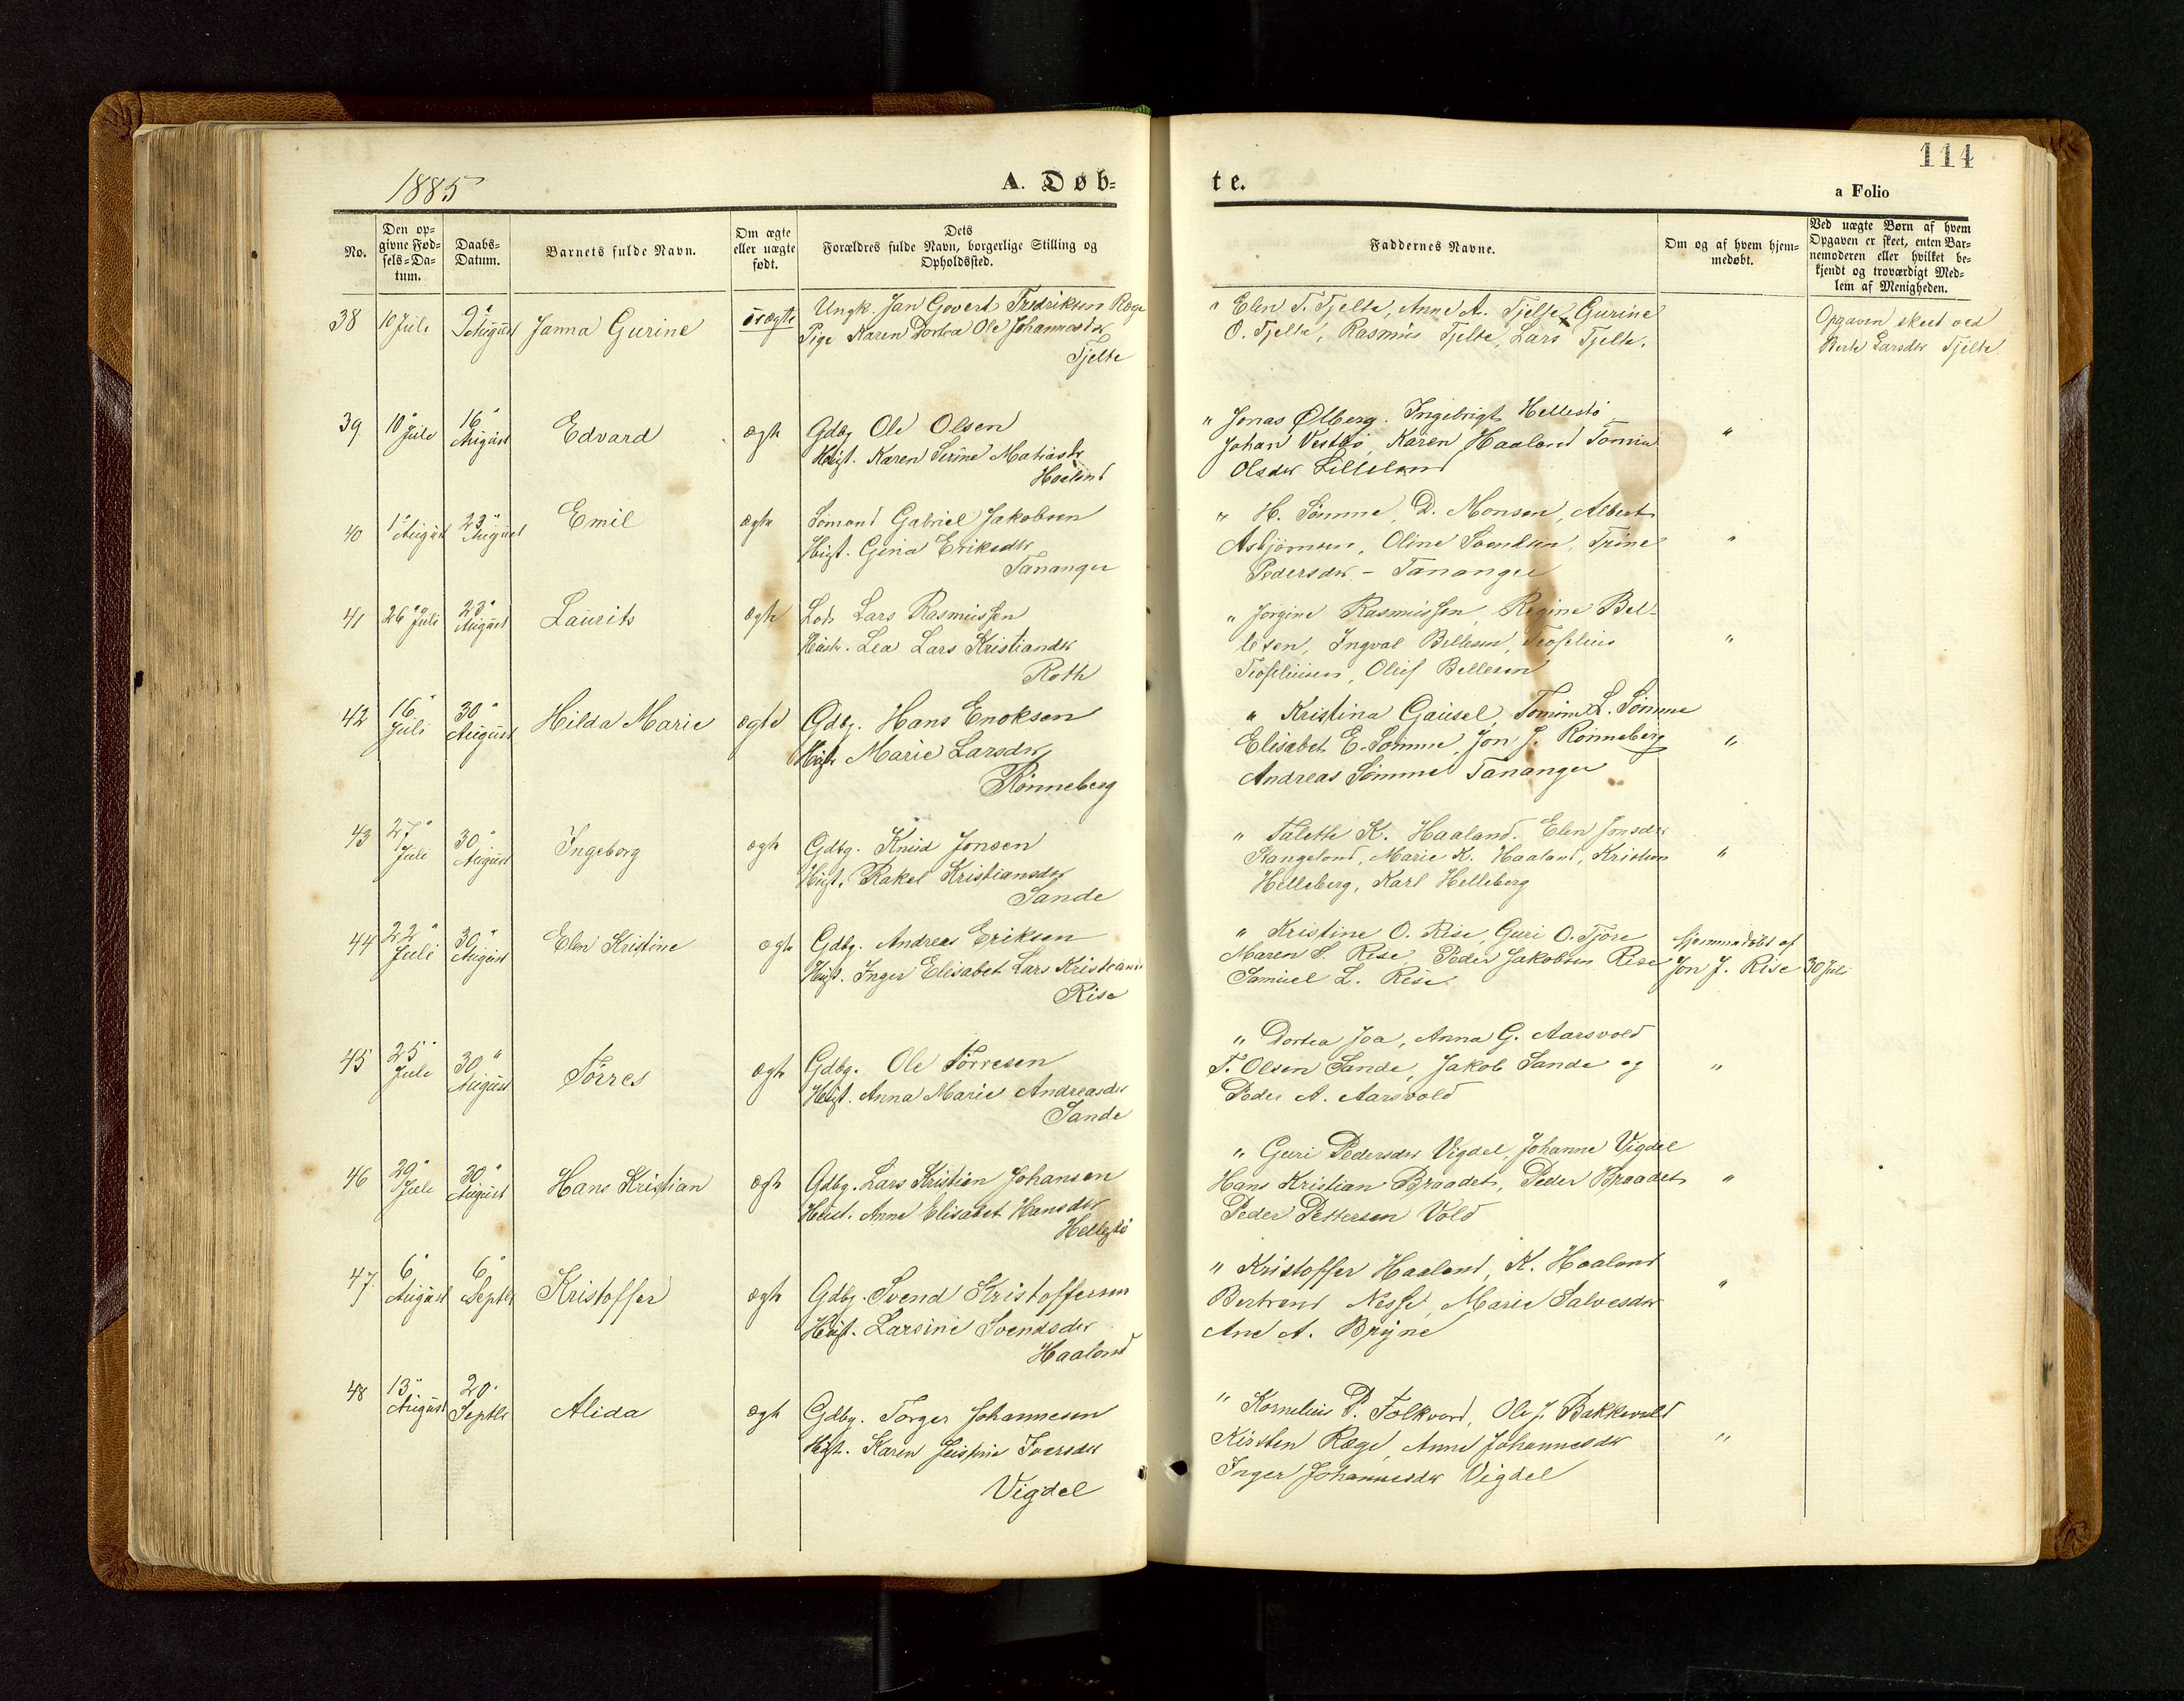 1885
A. Døb-
te.
114
a Folio
No.
Den op-
givne Fød-
sels-Da-
tum.
Daabs-
Datum.
Barnets fulde Navn.
Om ægte
eller uægte
født.
Dets
Forældres fulde Navn, borgerlige Stilling og
Opholdssted.
Faddernes Navne.
Om og af hvem hjem-
medøbt.
Ved uægte Børn af hvem
Opgaven er skeet, enten Bar-
nemoderen eller hvilket be-
kjendt og troværdigt Med-
lem af Menigheden.
38 10 Juli 9de August Janna Gurine uægte
Ungk. Jan Govert Fredriksen Ræge
Pige Karen Dortea Ole Johannesdtr
Tjelte
" Elen T. Tjelte, Anne A. Tjelte, Gurine
O. Tjelte, Rasmus Tjelte, Lars Tjelte.
Opgaven skeet ved
Berte Larsdtr Tjelte.
39 10" Juli 16" August Edvard ægte
Gdbg Ole Olsen
Hust. Karen Serine Matiasdtr
Haaland
" Jonas Ølberg. Ingebrigt Hellestø
Johan Vestbø, Karen Haaland
Olsdtr Lilleland
"
40 1" August 23" August Emil ægte
Sømand Gabriel Jakobsen
Hust. Gina Eriksdtr
Tananger
" H. Sømme, D. Monsen, Albert
Asbjørnsen, Oline Svendsen, Trine
Pedersdtr - Tananger
"
41 26" Juli 23" August Laurits ægte
Lods Lars Rasmussen
Hustr. Lea Lars Kristiansdtr
Roth
" Jorgine Rasmussen, Regine Bel-
lesen, Ingval Bellesen, Teofelius
Teofeliusen, Oluf Bellesen
"
42 16" Juli 30" August Hilda Marie ægte
Gdbg. Hans Enoksen
Hust Marie Larsdtr
Rønneberg
" Kristina Gausel, Tomine L. Sømme
Elisabet E. Sømme, Jon J. Rønneberg
Andreas Sømme Tananger
"
43 27" Juli 30" August Ingeborg ægte
Gdbg. Knud Jonsen
Hust. Rakel Kristiansdtr
Sande
" Talette K. Haaland. Elen Jonsdtr
Stangeland, Marie K. Haaland, Kristian
Helleberg, Karl Helleberg
"
44 22" Juli 30" August Elen Kristine ægte
Gdbg. Andreas Eriksen
Hust. Inger Elisabet Lars Kristians
Rise
" Kristine O. Rise, Guri O. Tjore
Maren S. Rise, Peder Jakobsen Rise
Samuel L. Rise.
hjemmedøbt af
Jon J. Rise 30 Juli
45 25" Juli 30" August Tørres ægte
Gdbg. Ole Tørresen
Hust. Anna Marie Andreasdtr
Sande
" Dortea Joa, Anna G. Aarsvold
T. Olsen Sande, Jakob Sande og
Peder A. Aarsvold
"
46 29" Juli 30" August Hans Kristian ægte
Gdbg. Lars Kristian Johansen
Hust. Anne Elisabet Hansdtr
Hellestø
" Guri Pedersdtr Vigdel, Johanne Vigdel
Hans Kristian Braadet, Peder Braadet
Peder Pettersen Vold
"
47. 6" August 6" Septbr Kristoffer ægte
Gdbg. Svend Kristoffersen
Hust. Larsine Svendsdtr
Haaland
" Kristoffer Haaland, K. Haaland
Bertrand Nesse, Marie Salvesdtr
Ane A. Bryne
"
48 13" August 20. Septbr Alida ægt
Gdbg. Torger Johannesen
Hust. Karen Justine Iversdtr
Vigdel
" Kornelius P. Folkvord, Ole J. Bakkevold
Kirsten Ræge, Anne Johannesdtr
Inger Johannesdtr Vigdel
"